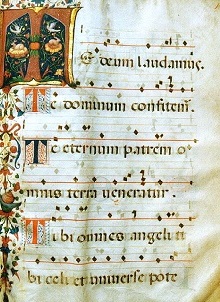 Te deum laudamus.
Te dominum confitemur.
Te eternum patrem o
mnis terra veneratur.
Tibi omnes angeli ti
bi celi et universe pote